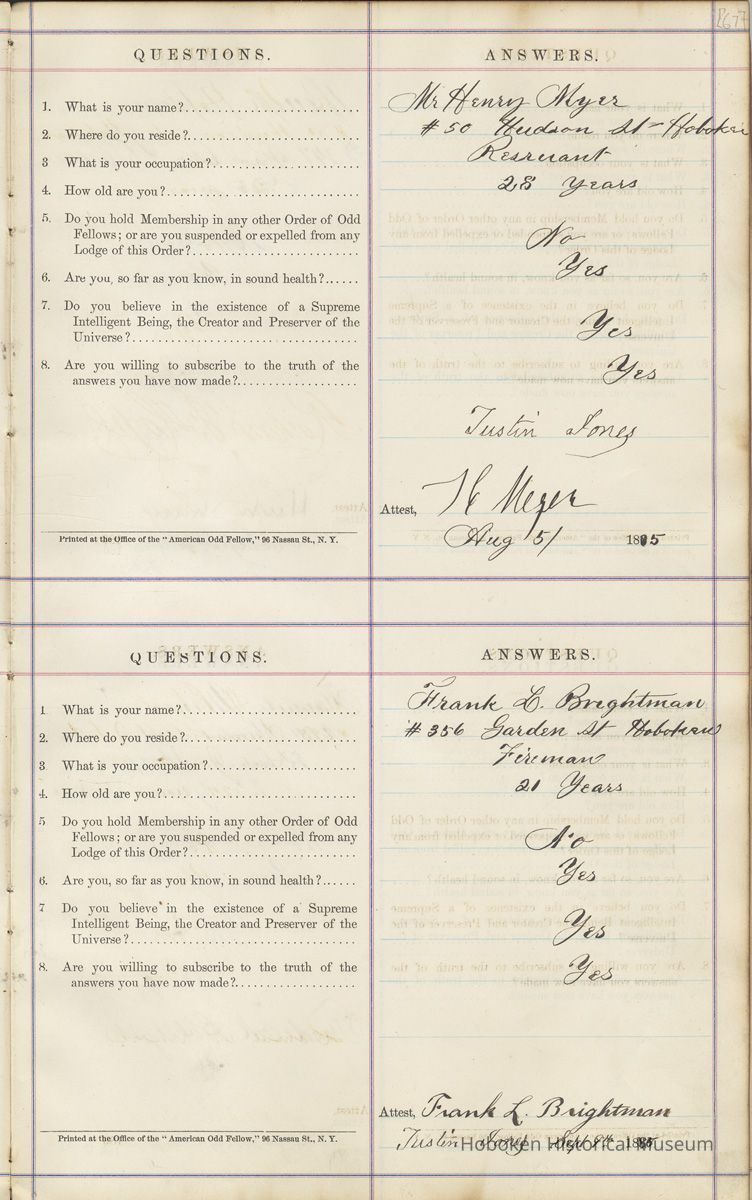 1677
QUESTIONS. ANSWERS.
1. What is your name? Mr Henry Myer
2. Where do you reside? # 50 Hudson St Hoboken
3 What is your occupation? Resruant
4. How old are you? 28 Years
5. Do you hold Membership in any other Order of Odd
Fellows; or are you suspended or expelled from any
Lodge of this Order? No
6. Are you, so far as you know, in sound health? Yes
7. Do you believe in the existence of a Supreme
Intelligent Being, the Creator and Preserver of the
Universe? Yes
8. Are you willing to subscribe to the truth of the
answers you have now made? Yes
Justin Jones
Attest, H Meyer
Printed at the Office of the "American Odd Fellow," 96 Nassau St., N. Y. Aug 5/ 1885
QUESTIONS. ANSWERS.
1 What is your name? Frank L. Brightman
2. Where do you reside? # 356 Garden St Hoboken
3 What is your occupation? Fireman
4. How old are you? 21 Years
5 Do you hold Membership in any other Order of Odd
Fellows; or are you suspended or expelled from any
Lodge of this Order? No
6. Are you, so far as you know, in sound health? Yes
7 Do you believe in the existence of a Supreme
Intelligent Being, the Creator and Preserver of the
Universe? Yes
8. Are you willing to subscribe to the truth of the
answers you have now made? Yes
Attest, Frank L. Brightman
Printed at the Office of the "American Odd Fellow," 96 Nassau St., N. Y. Justin Jones Sept 9th 1885
Hoboken Historical Museum